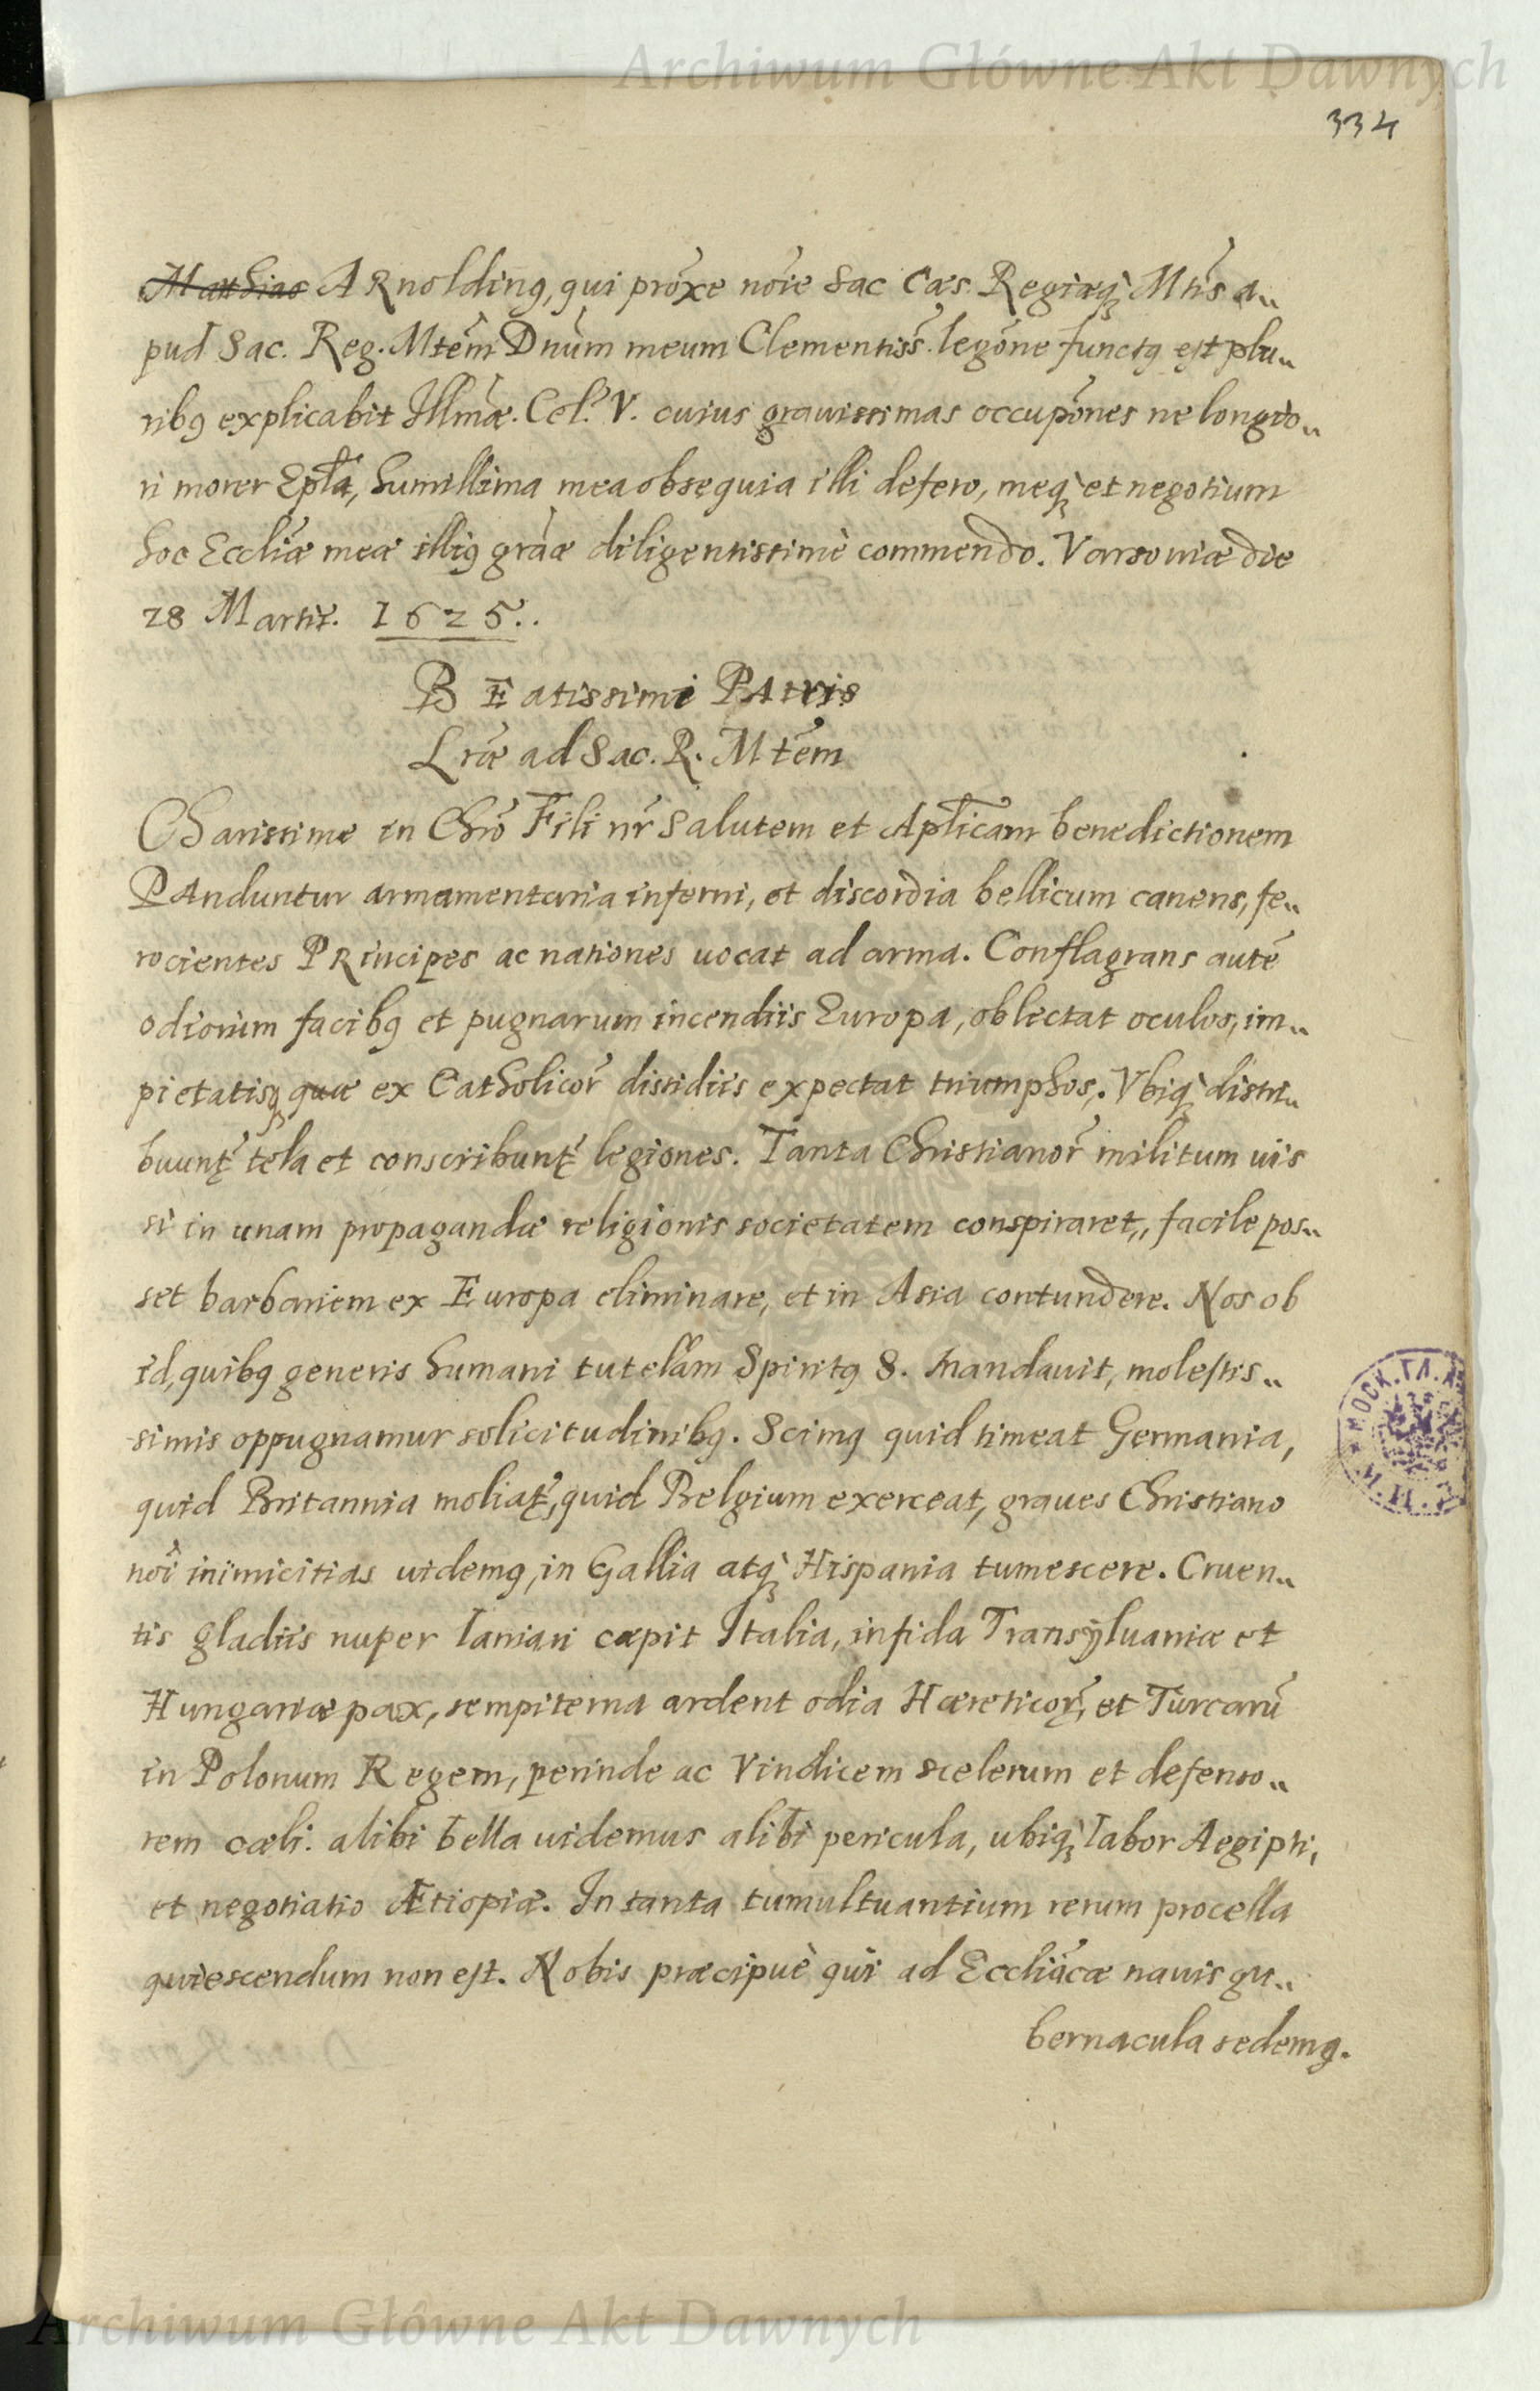 Archiwum Główne Akt Dawnych
334
Matthias ARnolding, qui proxe noie Sac Cæs. Regiæq Mtis a„
pud Sac. Reg. Mtem Dnum meum Clementiss. legone functq est plu„
ribq explicabit Illmæ. Cel. V. cuius grauissimas occupones ne longio„
ri morer Epla, humillima mea obsequia illi defero, meq et negotium
hoc Eccliæ meæ illiq graæ diligentissimè commendo. Varsouiæ die
28 Martii. 1625..
BEatissimi PAtris
Lræ ad Sac. R. Mtem
Charissime in Chro Fili nr Salutem et Aplicam benedictionem
PAnduntur armamentaria inferni, et discordia bellicum canens, fe„
rocientes PRincipes ac nationes uocat ad arma. Conflagrans autē
odiorum facibq et pugnarum incendiis Europa, oblectat oculos, im„
pietatisq quæ ex Catholicor dissidiis expectat triumphos. Vbiq distri„
buunt tela et conscribunt legiones. Tanta Christianor militum uis
si in unam propagandæ religionis societatem conspiraret, facile pos„
set barbariem ex Europa eliminare, et in Asia contundere. Nos ob
id, quibq generis humani tutelam Spiritq S. mandauit, molestis„
simis oppugnamur solicitudinibq. Scimq quid timeat Germania,
quid Britannia moliat, quid Belgium exerceat, graues Christiano
noi inimicitias uidemq, in Gallia atq Hispania tumescere. Cruen„
tis gladiis nuper laniari cæpit Italia, infida Transÿluaniæ et
Hungariæ pax, sempiterna ardent odia Hæreticor, et Turcarū
in Polonum Regem, perinde ac Vindicem scelerum et defenso„
rem cæli. alibi bella uidemus alibi pericula, ubiq labor Aegipti,
et negotiatio Ætiopiæ. In tanta tumultuantium rerum procella
quiescendum non est. Nobis præcipuè qui ad Eccliacæ nauis gu„
bernacula sedemq.
МОСК.ГЛ.А
Archiwum Główne Akt Dawnych